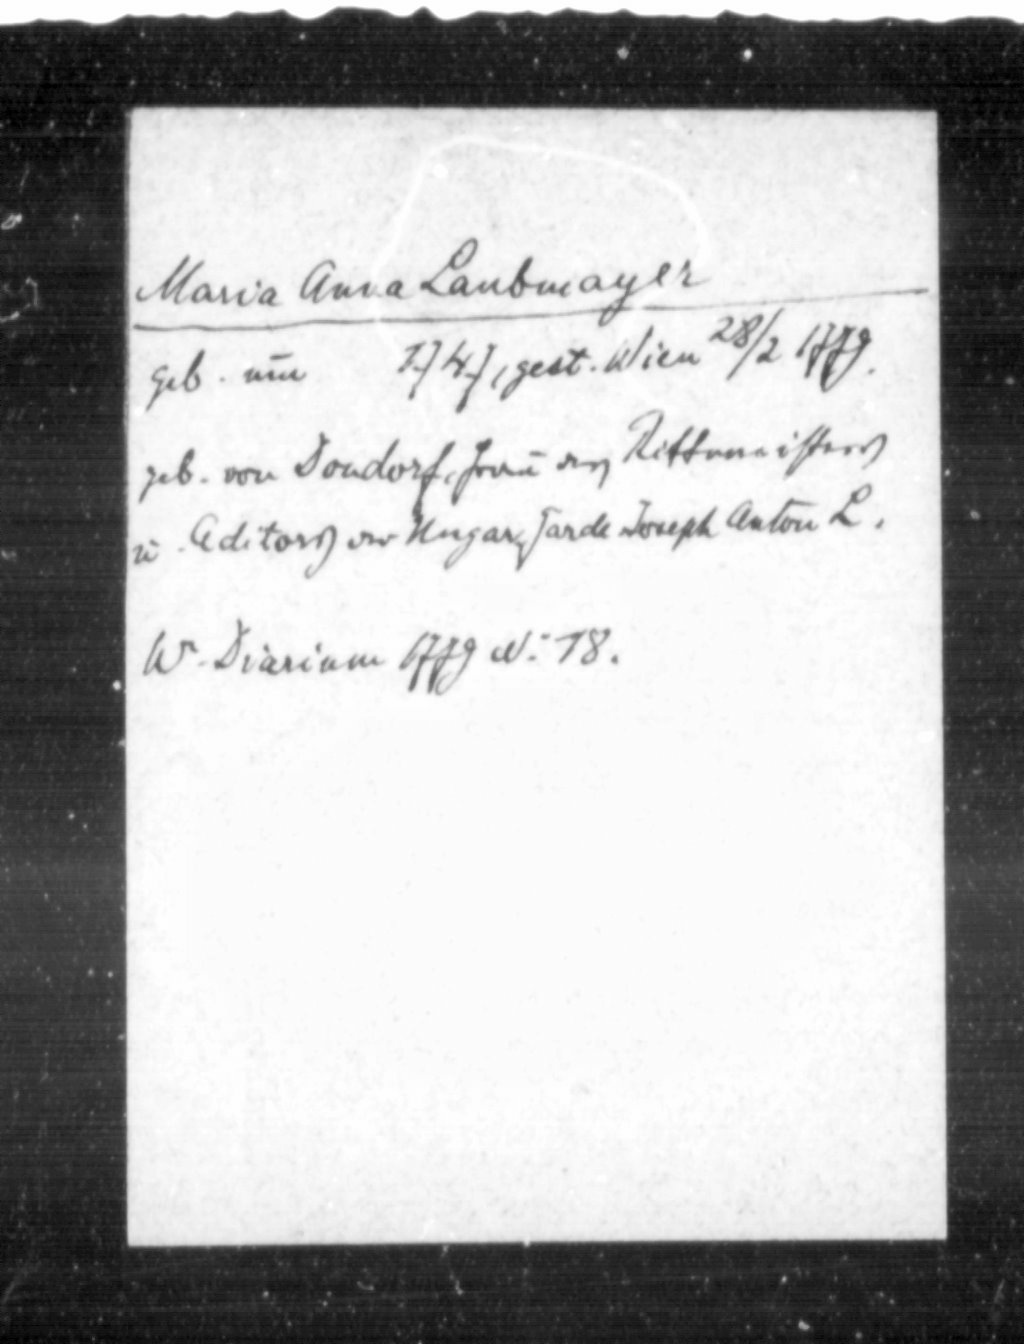 Maria Anna Laubmayer
geb. um 1747, gest. Wien 28/2 1779.
geb. von Dondorf, Frau des Rittmeisters
u. Aditors der Ungar. Garde Joseph Anton L.
Wr. Diarium 1779 N: 18.